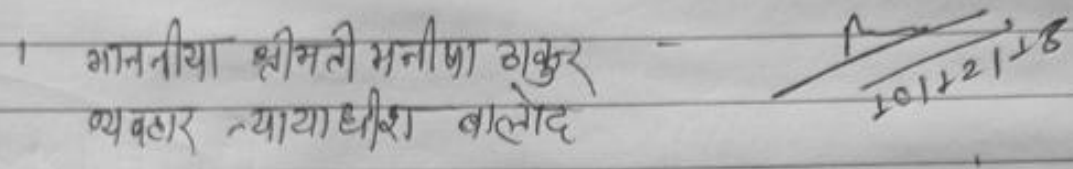 1 माननीया श्रीमती मनीषा ठाकुर - 10/12/18
व्यवहार न्यायाधीश बालोद